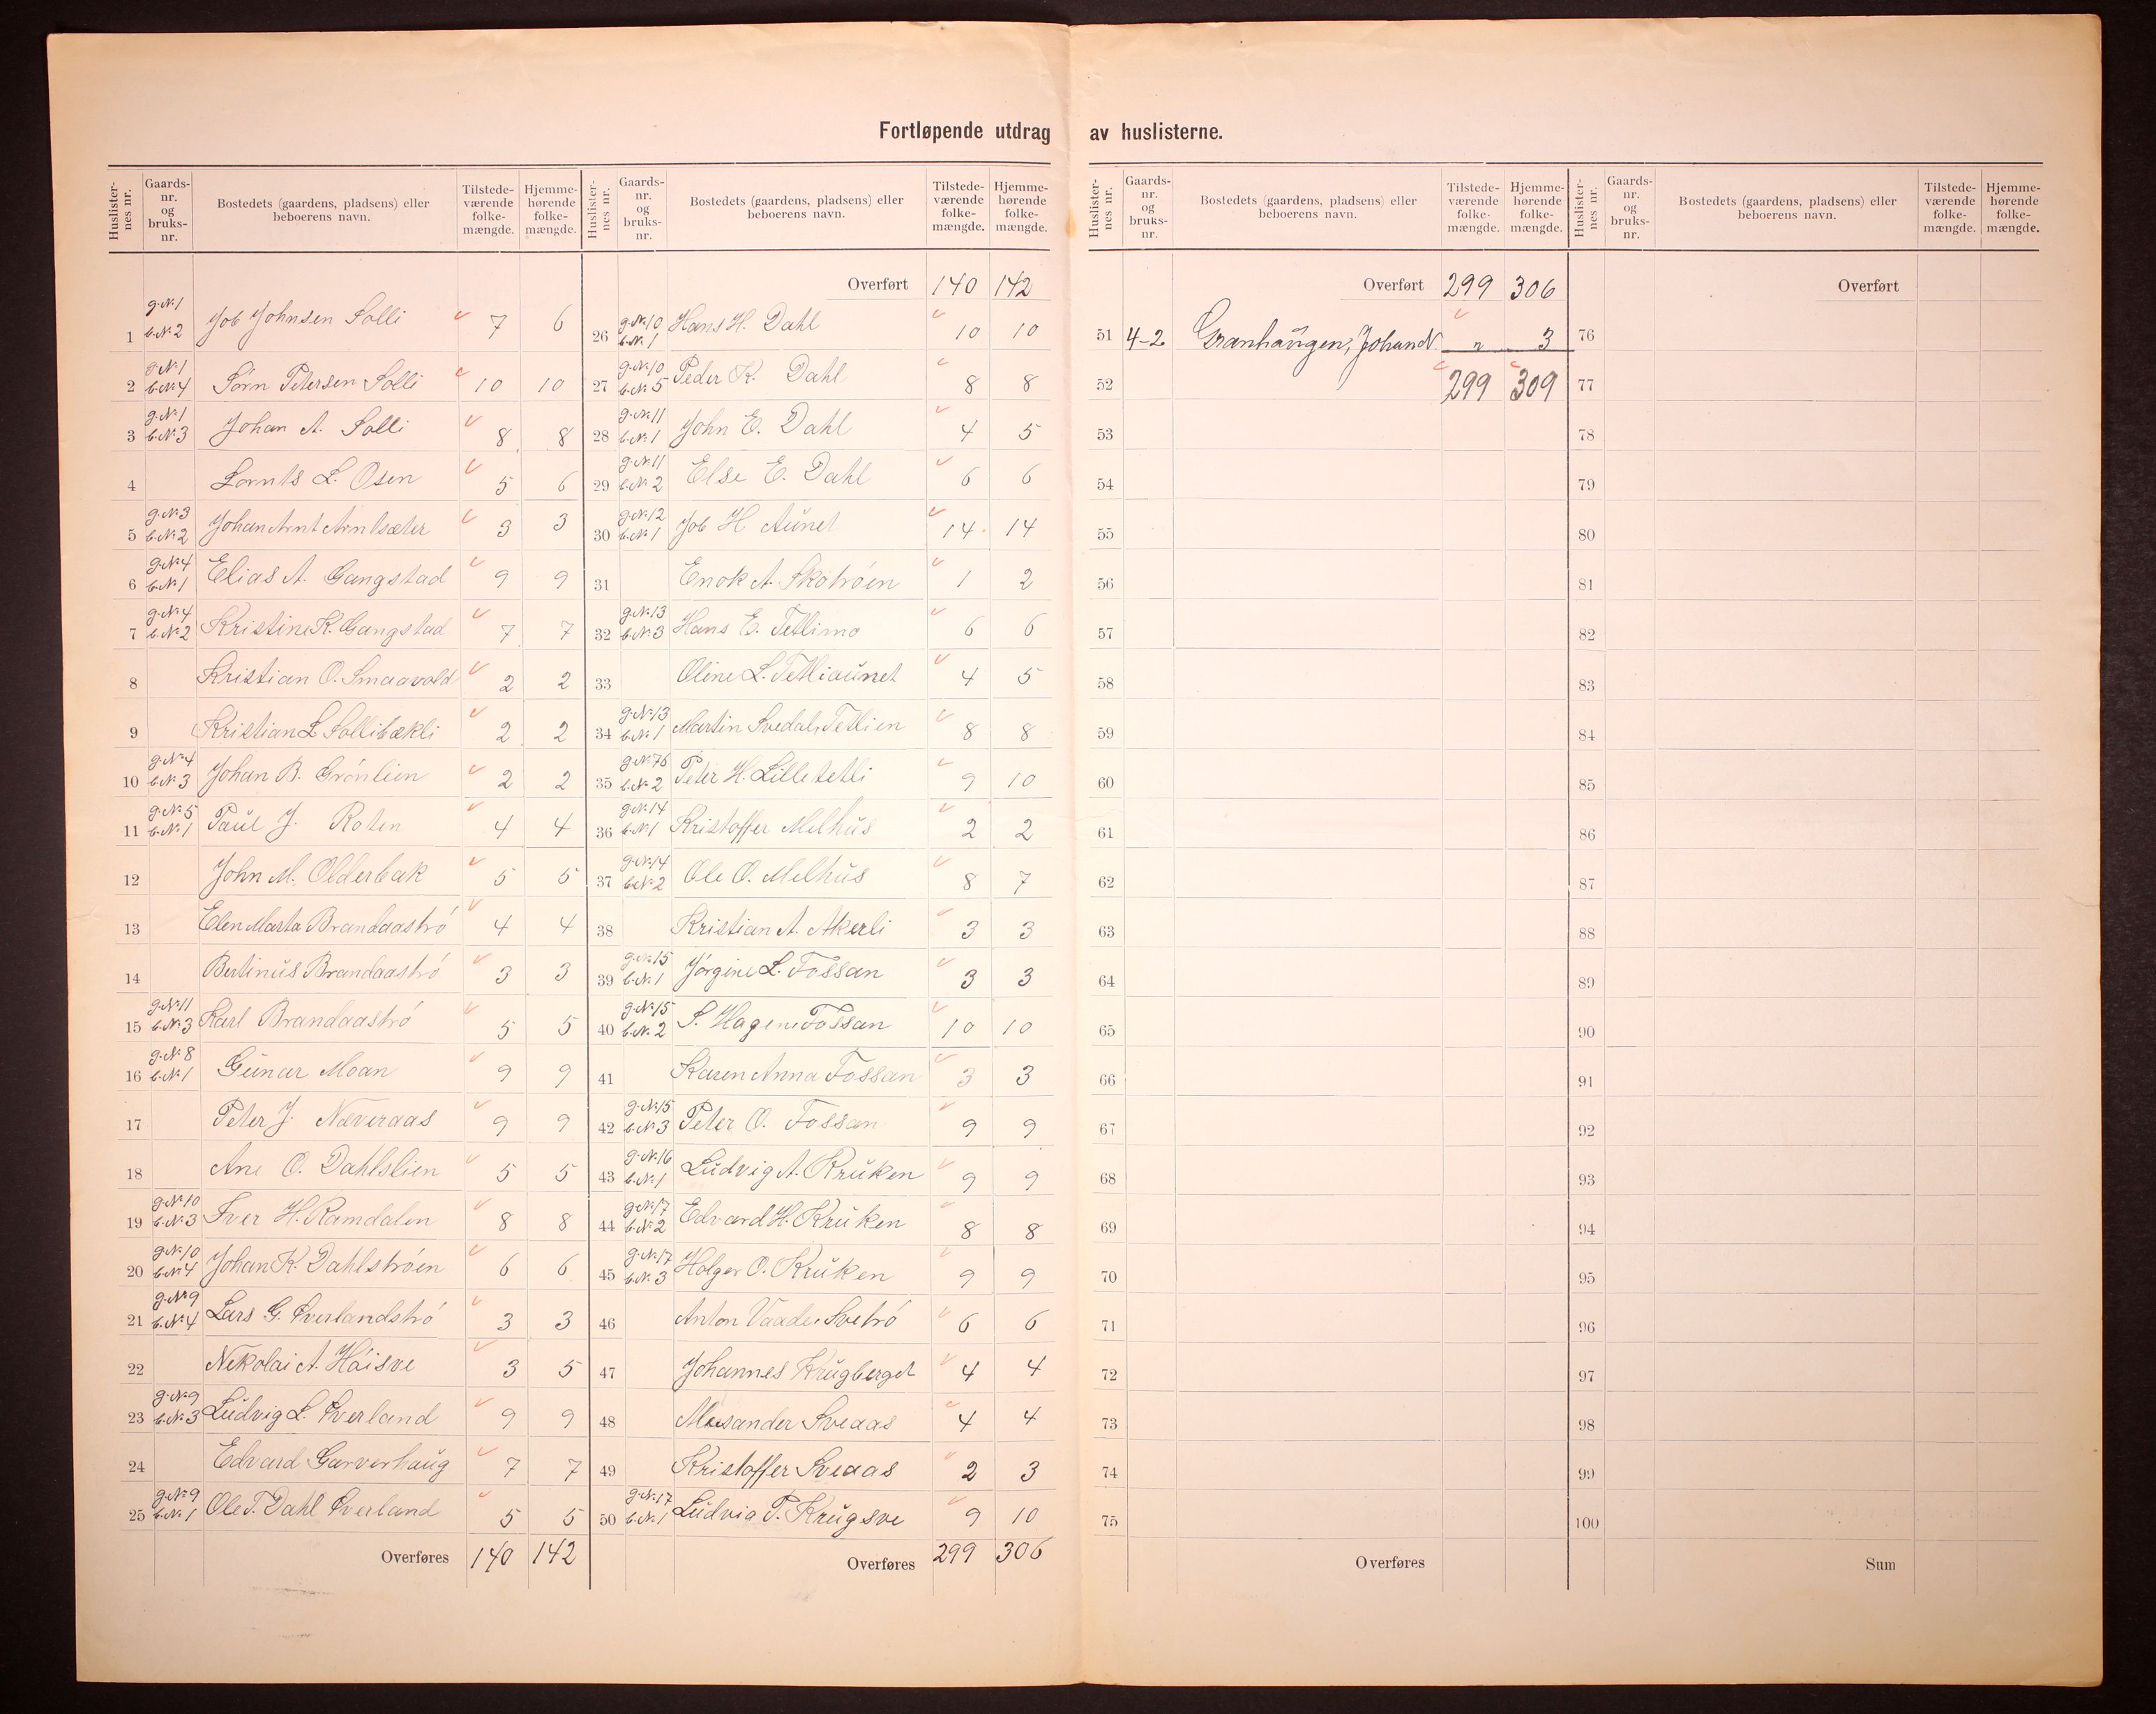 Fortløpende utdrag av huslisterne.
Huslisternes nr. Gaards-nr. og bruks-nr. Bostedets (gaardens, pladsens) eller beboerens navn. Tilstede-værende folke-mængde. Hjemme-hørende folke-mængde.
1 g.№1 b.№2 Job Johnsen Solli 7 6
2 g.№1 b.№4 Sörn Petersen Solli 10 10
3 g.№1 b.№3 Johan A. Solli 8 8
4 Lornts L. Osen 5 6
5 g.№3 b.№2 Johan Arnt Arntsæter 3 3
6 g.№4 b.№1 Elias A. Gangstad 9 9
7 g.№4 b.№2 Kristine K. Gangstad 7 7
8 Kristian O. Smaavold 2 2
9 Kristian L Sollibækli 2 2
10 g.№4 b.№3 Johan B. Grönlien 2 2
11 g.№5 b.№1 Paul J. Roten 4 4
12 John M. Olderbak 5 5
13 Elen Marta Brandaaströ 4 4
14 Bertinus Brandaaströ 3 3
15 g.№11 b.№3 Karl Brandaaströ 5 5
16 g.№8 b.№1 Gunar Moan 9 9
17 Peter J. Næveraas 9 9
18 Ane O. Dahlslien 5 5
19 g.№10 b.№3 Iver H. Ramdalen 8 8
20 g.№10 b.№4 Johan K. Dahlströen 6 6
21 g.№9 b.№4 Lars G. Överlandströ 3 3
22 Nekolai A. Höisve 3 5
23 g.№9 b.№3 Ludvig L. Överland 9 9
24 Edvard Garverhaug 7 7
25 g.№9 b.№1 Ole T. Dahl Överland 5 5
Overføres 140 142
Huslisternes nr. Gaards-nr. og bruks-nr. Bostedets (gaardens, pladsens) eller beboerens navn. Tilstede-værende folke-mængde. Hjemme-hørende folke-mængde.
Overført 140 142
26 g.№10 b.№1 Hans H. Dahl 10 10
27 g.№10 b.№5 Peder K. Dahl 8 8
28 g.№11 b.№1 John E. Dahl 4 5
29 g.№11 b.№2 Else E. Dahl 6 6
30 g.№12 b.№1 Job H Aunet 14 14
31 Enok A. Skotröen 1 2
32 g.№13 b.№3 Hans E. Tetlimo 6 6
33 Oline L. Tetliaunet 4 5
34 g.№13 b.№1 Martin Svedal, Tetlien 8 8
35 g.№76 b.№2 Peter H. Lilletetli 9 10
36 g.№14 b.№1 Kristoffer Melhus 2 2
37 g.№14 b.№2 Ole O. Melhus 8 7
38 Kristian A. Akerli 3 3
39 g.№15 b.№1 Jörgine L. Fossan 3 3
40 g.№15 b.№2 S. Hagen Fossan 10 10
41 Karen Anna Fossan 3 3
42 g.№15 b.№3 Peter O. Fossan 9 9
43 g.№16 b.№1 Ludvig A. Kruken 9 9
44 g.№17 b.№2 Edvard H. Kruken 8 8
45 g.№17 b.№3 Holger O. Kruken 9 9
46 Anton Vaade, Svetrö 6 6
47 Johannes Krugberget 4 4
48 Meusander Sveaas 4 4
49 Kristoffer Sveaas 2 3
50 g.№17 b.№1 Ludvig P. Krugsve 9 10
Overføres 299 306
Huslisternes nr. Gaards-nr. og bruks-nr. Bostedets (gaardens, pladsens) eller beboerens navn. Tilstede-værende folke-mængde. Hjemme-hørende folke-mængde.
Overført 299 306
51 4-2 Granhaugen, Johan N. " 3
52 299 309
53
54
55
56
57
58
59
60
61
62
63
64
65
66
67
68
69
70
71
72
73
74
75
Overføres
Huslisternes nr. Gaards-nr. og bruks-nr. Bostedets (gaardens, pladsens) eller beboerens navn. Tilstede-værende folke-mængde. Hjemme-hørende folke-mængde.
Overført
76
77
78
79
80
81
82
83
84
85
86
87
88
89
90
91
92
93
94
95
96
97
98
99
100
Sum